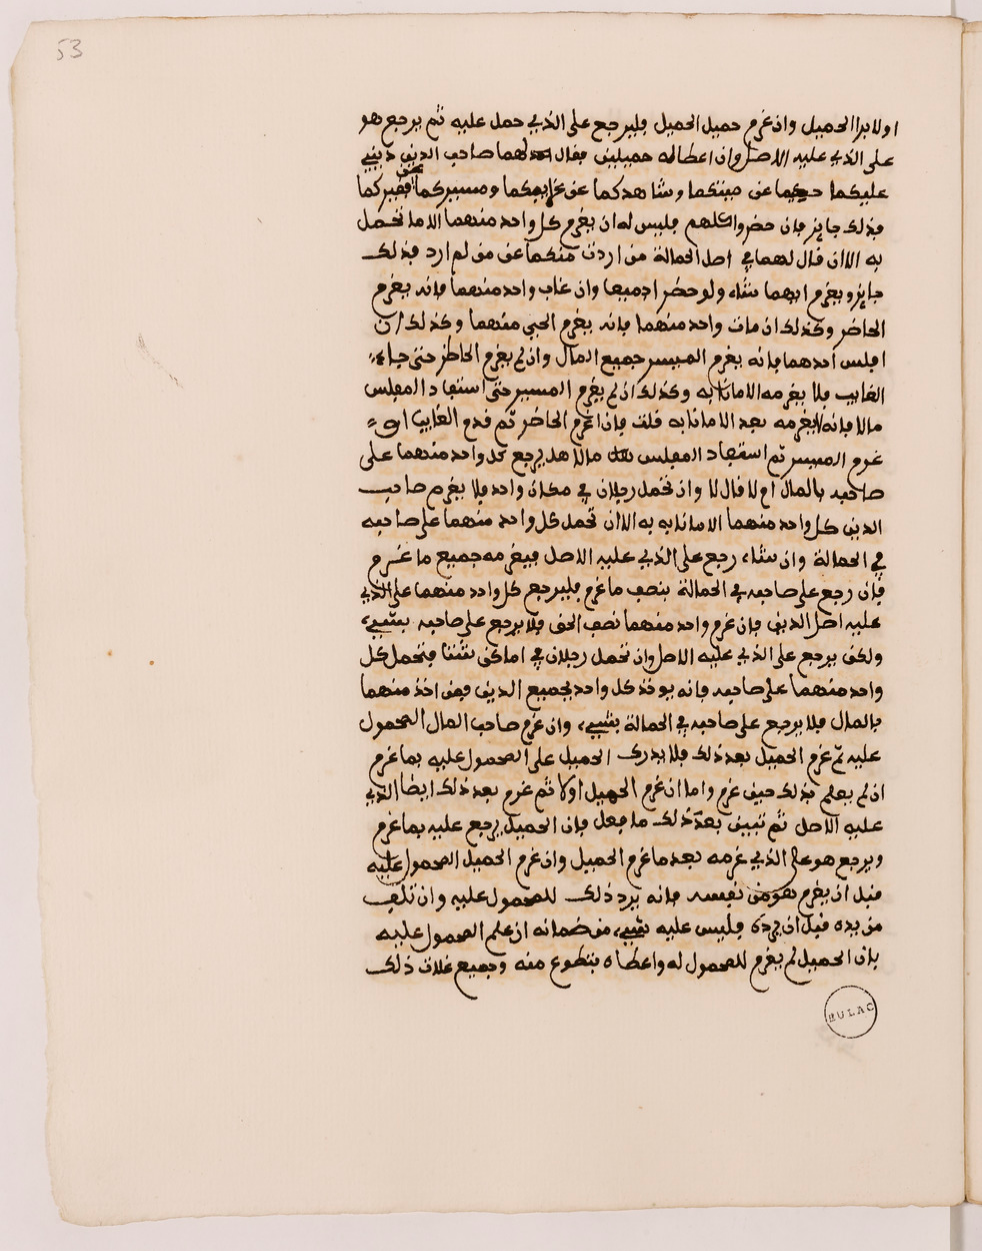 53
اولابرا الحميل وان غرم حميل الحميل فليرجع على الذي حمل عليه ثم يرجع هو
على الذي عليه الاصل وان اعطا له حميلين فقال لهما صاحب الدين ديني
عليكما حيكما عن ميتكما وشاهدكما عن غايبكما وميسركما عن فقيركما
فذلك جايز فان حضروا كلهم فليس له ان يغرم كل واحد منهما الا ما تحمل
به الا ان قال لهما في اصل الحمالة من اردت منكما عن من لم ارد فذلك
جايز ويغرم ايهما شاء ولو حضرا جميعا وان غاب واحد منهما فانه يغرم
الحاضر وكذلك ان مات واحد منهما فانه يغرم الحي منهما وكذلك ان
افلس احدهما فانه يغرم الميسر جميع المال وان لم يغرم الحاظر حتى جاء
الغايب فلا يغرمه الا ما نابه وكذلك ان لم يغرم الميسر حتى استفاد المفلس
مالا فانه لا يغرمه بعد الا ما نابه قلت فان اغرم الحاضر ثم قدم الغايب او
غرم الميسر ثم استفاد المفلس مالا هل يرجع كل واحد منهما على
صاحبه بالمال ام لا قال لا وان تحمل رجلان في مكان واحد فلا يغرم صاحب
الدين كل واحد منهما الا ما نابه به الا ان تحمل كل واحد منهما على صاحبه
في الحمالة وان شاء رجع على الذي عليه الاصل فيغرمه جميع ما غرم
فان رجع على صاحبه في الحمالة بنصف ما غرم فليرجع كل واحد منهما على الذي
عليه اصل الدين فان غرم واحد منهما نصف الحق فلا يرجع على صاحبه بشيء
ولكن يرجع على الذي عليه الاصل وان تحمل رجلان في اماكن شتا فتحمل كل
واحد منهما على صاحبه فانه يوخذ كل واحد بجميع الدين فمن اخذ منهما
بالمال فلا يرجع على صاحبه في الحمالة بشيء وان غرم صاحب المال المحمول
عليه ثم غرم الحميل بعد ذلك فلا يدرك الحميل على المحمول عليه بما غرم
ان لم يعلم بذلك حين غرم واما ان غرم الحميل اولا ثم غرم بعد ذلك ايضا الذي
عليه الاصل ثم تبين بعد ذلك ما فعل فان الحميل يرجع عليه بما غرم
ويرجع هو على الذي غرمه بعد ما غرم الحميل وان غرم الحميل المحمول عليه
قبل ان يغرم هو من نفسه فانه يرد ذلك للمحمول عليه وان تلف
من يده قبل ان يرده فليس عليه شيء من ضمانه ان علم المحمول عليه
بان الحميل لم يغرم للمحمول له واعطاه بتطوع منه وجميع غلات ذلك
BULAC